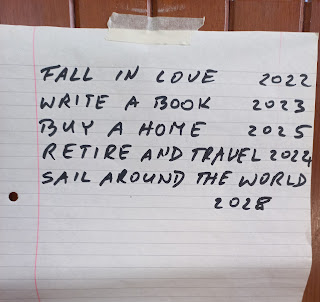 FALL IN LOVE 2022
WRITE A BOOK 2023
BUY A HOME 2025
RETIRE AND TRAVEL 2024
SAIL AROUND THE WORLD
2028